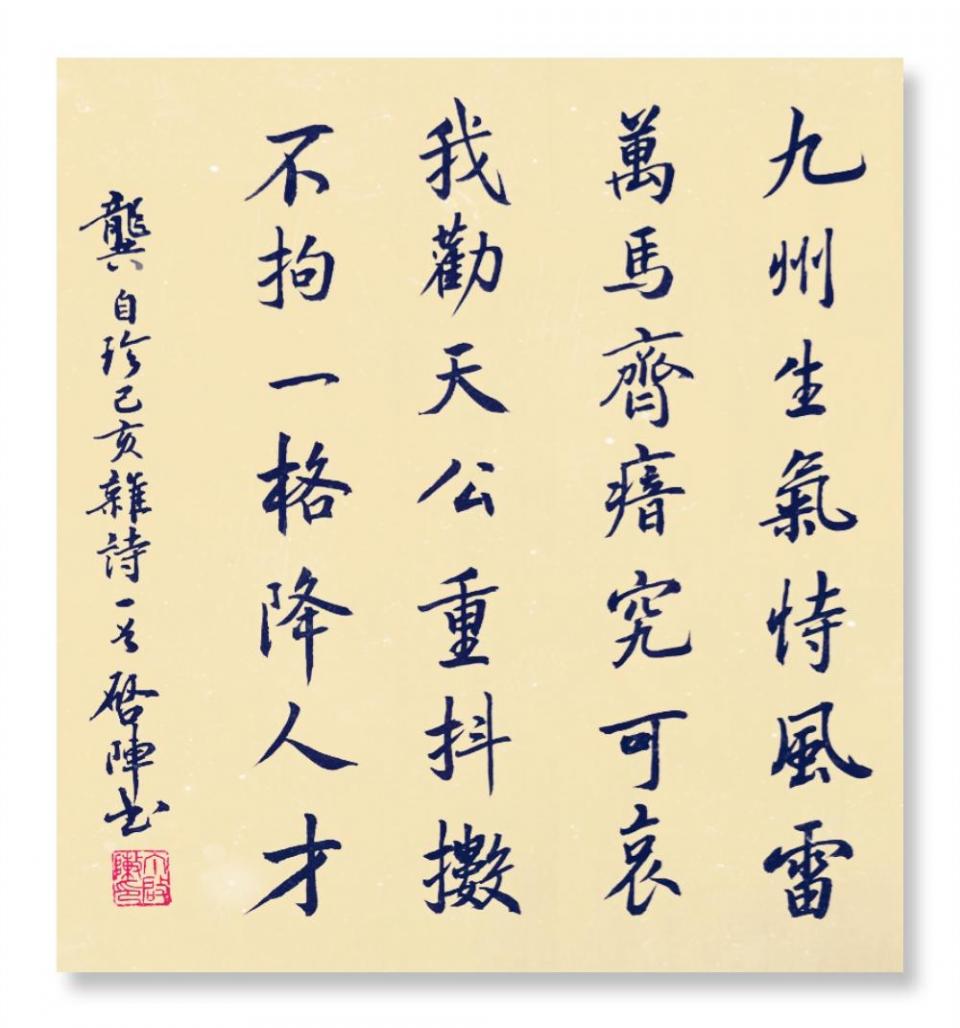 九州生氣恃風雷
萬馬齊瘖究可哀
我勸天公重抖擻
不拘一格降人才
龔自珍己亥雜詩一首啓陣書